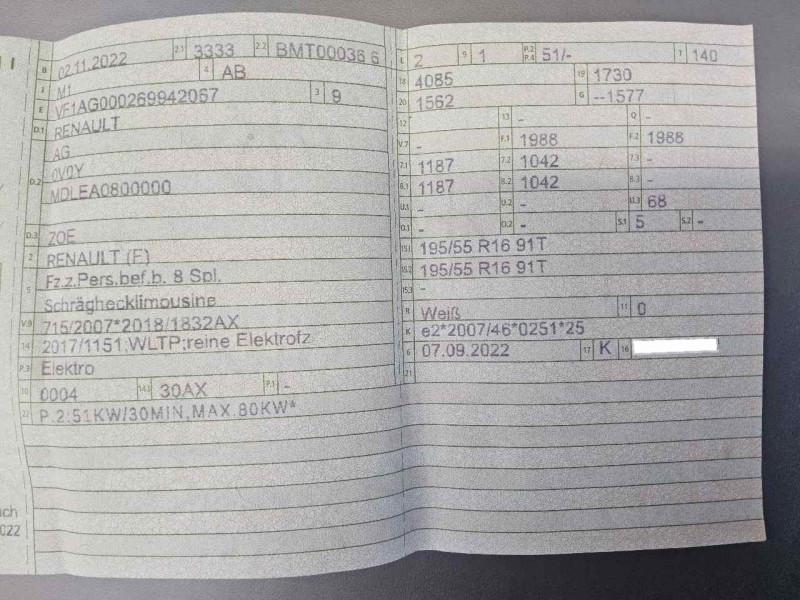 B 02.11.2022 2.1 3333 2.2 BMT00036 6
J M1 4 AB
E VF1AG000269942067 3 9
D.1 RENAULT
AG
D.2 0V0Y
MDLEA0800000
D.3 ZOE
2 RENAULT (F)
5 Fz.z.Pers.bef.b. 8 Spl.
Schräghecklimousine
V.9 715/2007*2018/1832AX
14 2017/1151;WLTP;reine Elektrofz
P.3 Elektro
10 0004 14.1 30AX P.1 -
22 P.2:51KW/30MIN,MAX.80KW*
L 2 9 1 P.2 P.4 51/- T 140
18 4085 19 1730
20 1562 G --1577
12 - 13 - Q -
V.7 - F.1 1988 F.2 1988
7.1 1187 7.2 1042 7.3 -
8.1 1187 8.2 1042 8.3 -
U.1 - U.2 - U.3 68
O.1 - O.2 - S.1 5 S.2 -
15.1 195/55 R16 91T
15.2 195/55 R16 91T
15.3 -
R Weiß 11 0
K e2*2007/46*0251*25
6 07.09.2022 17 K 16
21
022